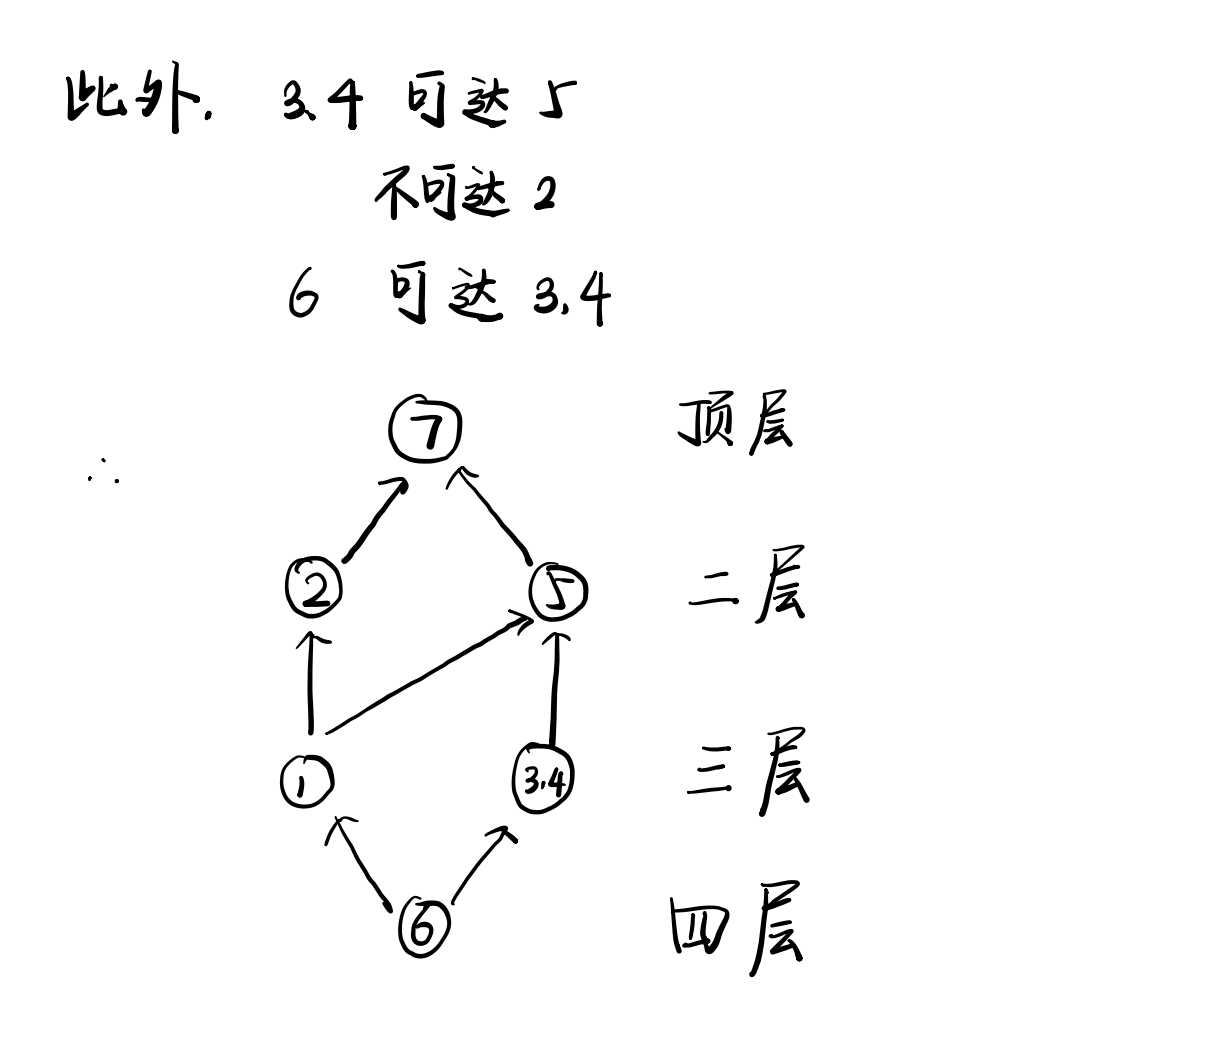 此外. 3.4 可达 5
不可达 2
6 可达 3.4
7 顶层
∴
2 5 二层
1 3.4 三层
6 四层